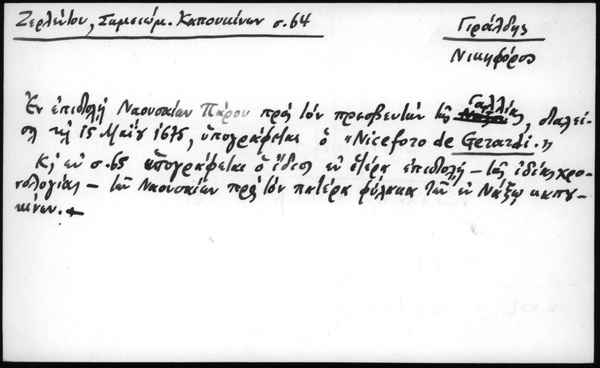 Ζερλέντου, Σημειώμ. Καπουκίνων σ. 64
Γιράλδης
Νικηφόρος
Ἐν ἐπιστολῇ Ναουσαίων Πάρου πρὸς τὸν πρεσβευτὴν τῆς Γαλλίας, σταλεί-
σῃ τῇ 15 Μαΐου 1675, ὑπογράφεται ὁ "Niceforo de Gerardi."
Κ' ἐν σ. 65 ὑπογράφεται ὁ ἴδιος ἐν ἑτέρᾳ ἐπιστολῇ – τῆς ἰδίας χρο-
νολογίας – τῶν Ναουσαίων πρὸς τὸν πατέρα φύλακα τῶν ἐν Νάξῳ καπου-
κίνων.